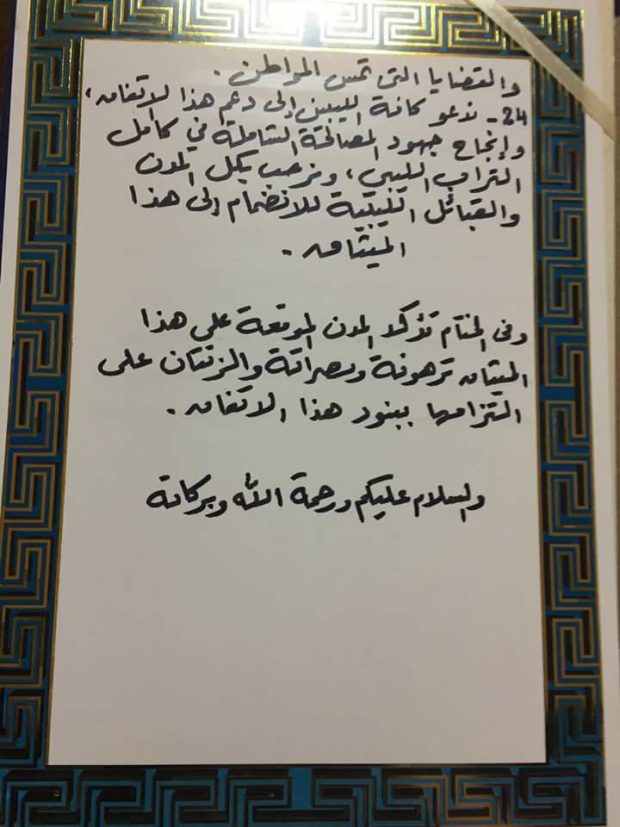 والقضايا التي تمس المواطن .
24 - ندعو كافة الليبين إلى دعم هذا الاتفاق ،
وإنجاح جهود المصالحة الشاملة في كامل
التراب الليبي ، ونرحب بكل المدن
والقبائل الليبية للانضمام إلى هذا
الميثاق .
وفي الختام تؤكد المدن الموقعة على هذا
الميثاق ترهونة ومصراتة والزنتان على
التزامها ببنود هذا الاتفاق .
والسلام عليكم ورحمة الله وبركاته